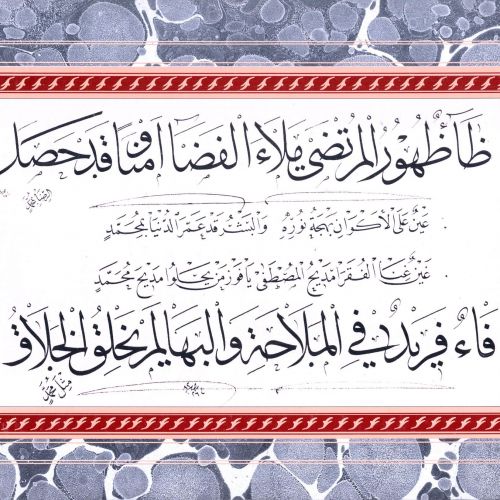 ظاء ظهور المرتضى ملاء الفضا أمنا وقد حصل
عين على الأكوان بهجة نوره والبشر قد عمر الدنيا بمحمد
غين غنا الفقرا مديح المصطفى يا فوز من يحلوا مديح محمد
فاء فريد في الملاحة والبها لم يخلق الخلاق
مثل محمد